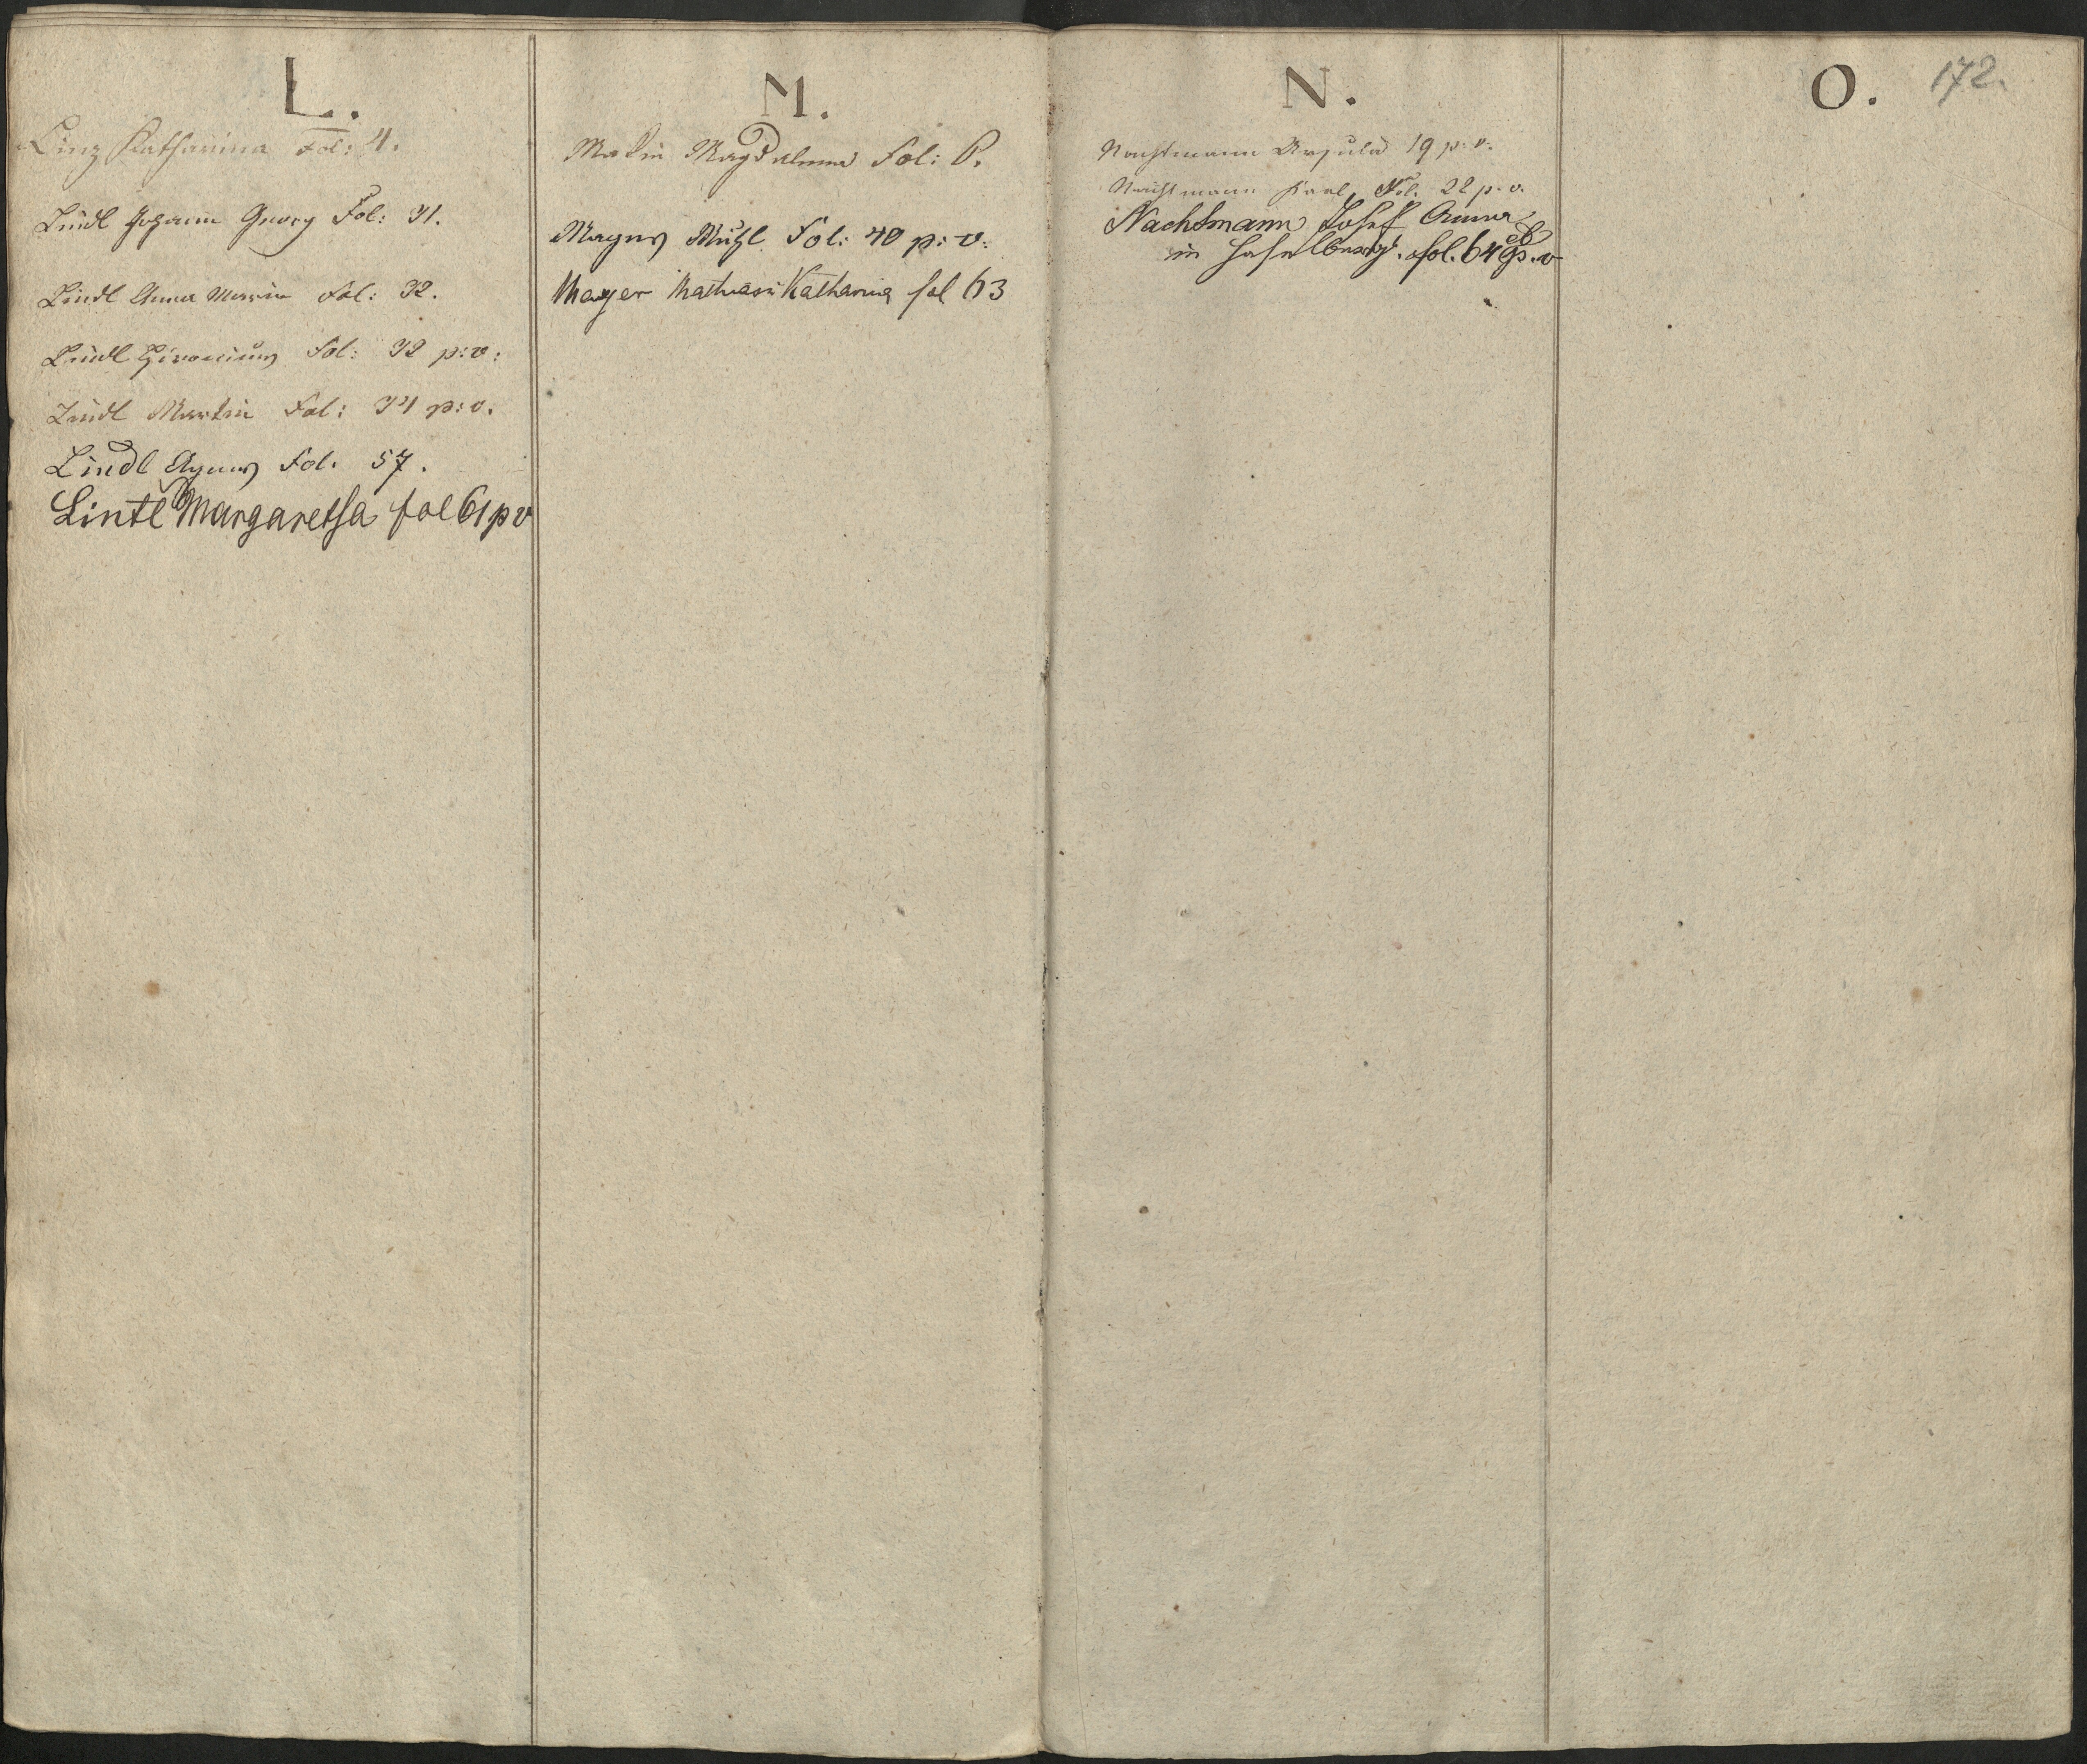 L.
Linz Katharina Fol: 4.
Lindl Johann Georg Fol: 31.
Lindl Anna Maria Fol: 32.
Lindl Fol: 32 p: v:
Lindl Martin Fol: 34 p: v.
Lindl Agnes Fol. 57.
Lintl Margaretha fol 61 p v
M.
Magdalena Fol: 6.
Mayer Fol: 40 p: v:
Mayer Mathias u Katharina fol 63
N.
Nachtmann Ursula 19 p: v:
Nachtmann Karl Fol. 22 p. v.
Nachtmann Josef Anna
in Haselberg. fol. 64 p. v
O.
172.